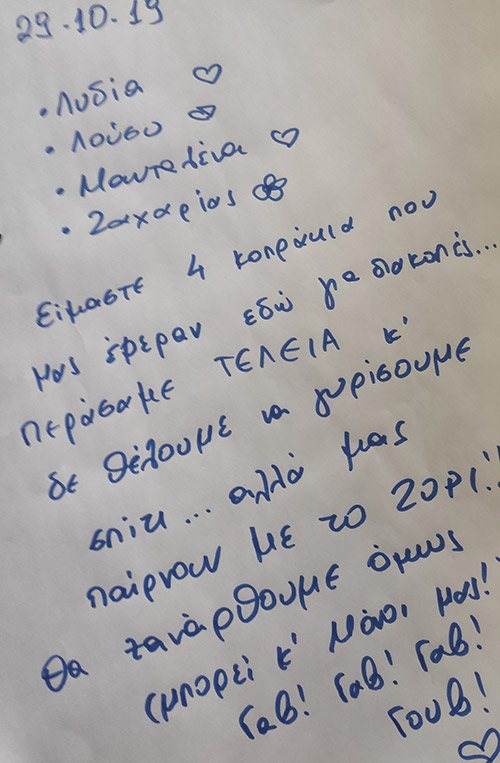 29.10.19
• Λυδία
• Λούσυ
• Μανταλένα
• Ζαχαρίας
Είμαστε 4 κοπράκια που
μας έφεραν εδώ για διακοπές...
Περάσαμε ΤΕΛΕΙΑ κ'
δε θέλουμε να γυρίσουμε
σπίτι... αλλά μας
παίρνουν με το ΖΟΡΙ!!
Θα ξανάρθουμε όμως
(μπορεί κ' μόνοι μας!)
Γαβ! Γαβ! Γαβ!
Γουβ!